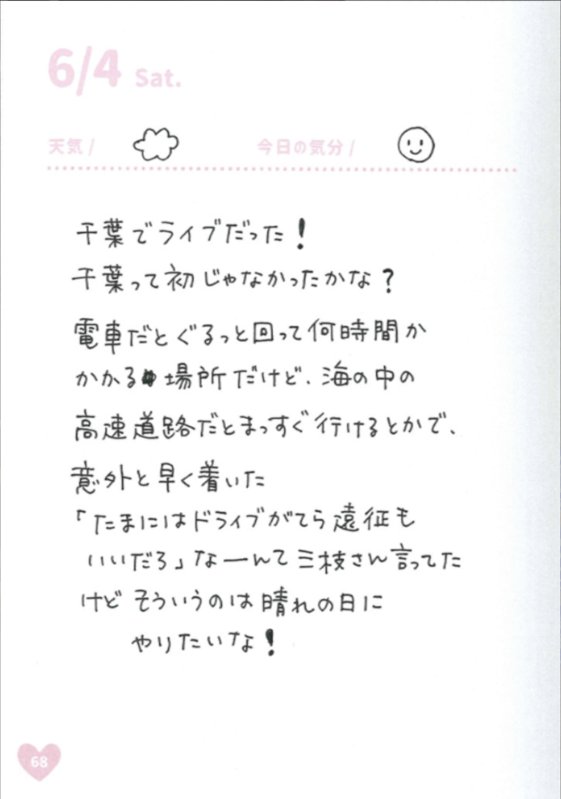 6/4 Sat.
天気 / 今日の気分 /
千葉でライブだった！
千葉って初じゃなかったかな？
電車だとぐるっと回って何時間か
かかる場所だけど、海の中の
高速道路だとまっすぐ行けるとかで、
意外と早く着いた
「たまにはドライブがてら遠征も
いいだろ」なーんて三枝さん言ってた
けど そういうのは晴れの日に
やりたいな！
68